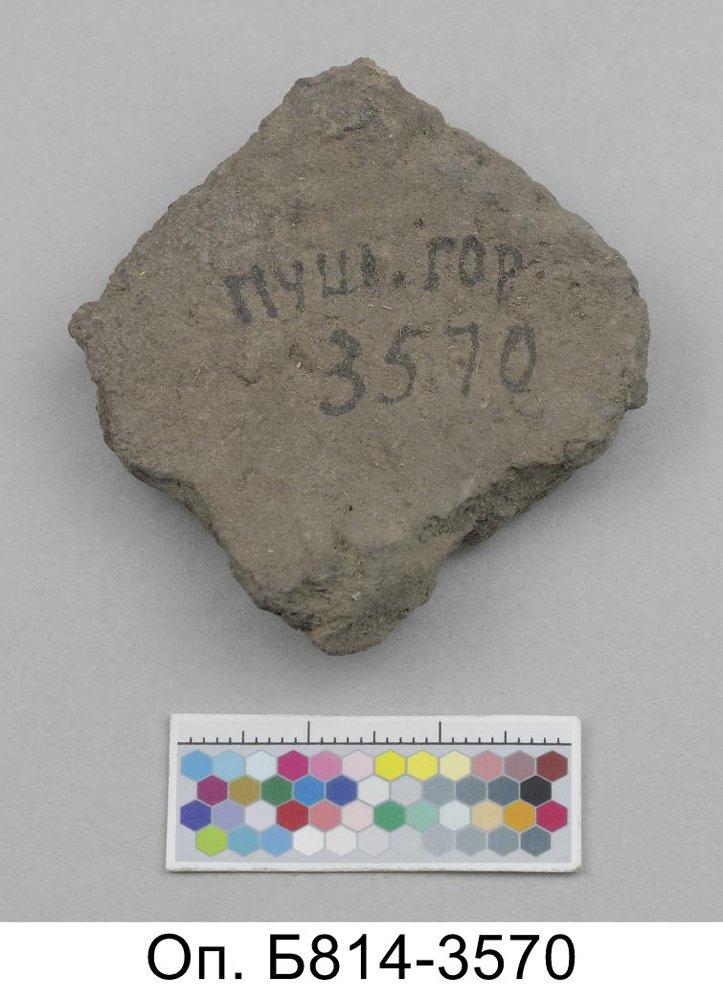 ПУЦВ. ГОР.
3570
Оп. Б814-3570